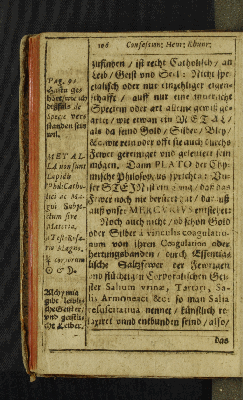 106 Confessum: Henr: Khunr:
zufinden / ist recht Catholisch / an
Leib / Geist und Seel: Nicht spe-
cialisch oder nur einzehliger eigen-
schafft / auff nur eine
Speciem oder art alleine
artet / wie etwan ein METALL /
als da seind Gold / Silber / Bley /
wie rein oder offt sie auch durchs
Fewer gereiniget und geleutert sein
mögen. Dann PLATO der
mische Philosophus spricht: Un-
ser STEIN ist ein / das das
Fewer noch nie berüret hat / das ist
auß unser MERCURIUS entspringet
Noch auch nicht / ob schon Gold
oder Silber à vinculis coagulatio-
num von ihren Coagulation oder
hertungsbanden / durch Essentia-
lische Saltzfewer der
und flüchtigen Corporalischen Gei-
ster Salium urinæ, Tartari, Sa-
lis Armoneaci &c: so man Salia
resuscitativa nennet / künstlich re-
laxiret unnd entbunden seind / also /
das
Pag. 94
hören, wie ich
Specie ver-
standen sein
wil.
METAL-
LA non sunt
Lapidis
Phil: Catho-
lici ac Ma-
gni Subje-
ctum sive
Materia,
Magno.
corporum
☉ & ☽.
Alchymia
gibt leibli-
che Geister /
und geistli-
che Leiber.